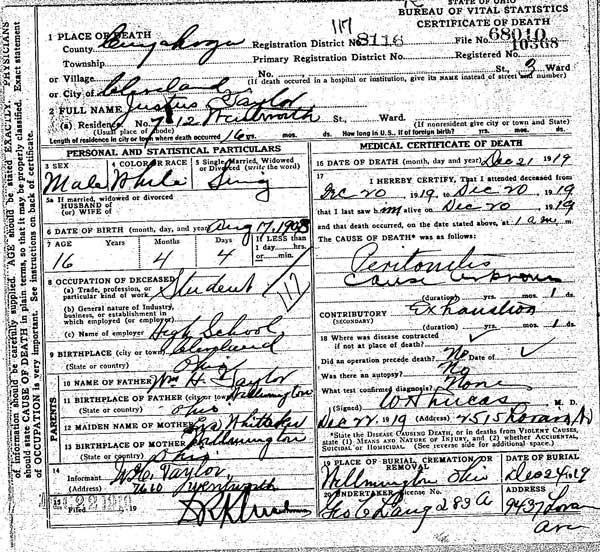 STATE OF OHIO
BUREAU OF VITAL STATISTICS
CERTIFICATE OF DEATH
1 PLACE OF DEATH
County Cuyahoga
Registration District No. 8116 File No. 68010
Township Primary Registration District No. Registered No. 10368
or Village No. St., 3 Ward
(If death occurred in a hospital or institution, give its NAME instead of street and number)
or City of Cleveland
2 FULL NAME Taylor
(a) Residence. No. St., Ward.
(Usual place of abode) (If nonresident give city or town and State)
Length of residence in city or town where death occurred 16 yrs. mos. ds. How long in U.S., if of foreign birth? yrs. mos. ds.
PERSONAL AND STATISTICAL PARTICULARS
3 SEX 4 COLOR OR RACE 5 Single, Married, Widowed
or Divorced (write the word)
Male White Sing
5a If married, widowed or divorced
HUSBAND of
(or) WIFE of
6 DATE OF BIRTH (month, day, and year) Aug 17, 1903
7 AGE Years Months Days If LESS than
1 day, hrs.
or min.
16 4 4
8 OCCUPATION OF DECEASED
(a) Trade, profession, or
particular kind of work Student
(b) General nature of Industry,
business, or establishment in
which employed (or employer)
(c) Name of employer High School
9 BIRTHPLACE (city or town) Cleveland
(State or country) Ohio
PARENTS
10 NAME OF FATHER Wm H. Taylor
11 BIRTHPLACE OF FATHER (city or town) Wilmington
(State or country) Ohio
12 MAIDEN NAME OF MOTHER Whittaker
13 BIRTHPLACE OF MOTHER (city or town) Wilmington
(State or country) Ohio
14
Informant W. H. Taylor
(Address)
15
Filed 19
MEDICAL CERTIFICATE OF DEATH
16 DATE OF DEATH (month, day, and year) Dec 21 1919
17
I HEREBY CERTIFY, That I attended deceased from
Dec 20, 1919, to Dec 20, 1919
that I last saw him alive on Dec 20, 1919
and that death occurred, on the date stated above, at 1 a m.
The CAUSE OF DEATH* was as follows:
Peritonitis
Cause unknown
(duration) yrs. mos. 1 ds.
CONTRIBUTORY Exhaustion
(SECONDARY)
(duration) yrs. mos. 1 ds.
18 Where was disease contracted
if not at place of death?
Did an operation precede death? No Date of
Was there an autopsy? No
What test confirmed diagnosis? None
(Signed) W H Lucas M. D.
Dec 22, 1919 (Address)
*State the DISEASE CAUSING DEATH, or in deaths from VIOLENT CAUSES,
state (1) MEANS AND NATURE OF INJURY, and (2) whether ACCIDENTAL,
SUICIDAL or HOMICIDAL. (See reverse side for additional space.)
19 PLACE OF BURIAL, CREMATION OR REMOVAL DATE OF BURIAL
Wilmington Ohio Dec 24, 19
20 UNDERTAKER License No. ADDRESS
283 A
of information should be carefully supplied. AGE should be stated EXACTLY. PHYSICIANS
should state CAUSE OF DEATH in plain terms, so that it may be properly classified. Exact statement
of OCCUPATION is very important. See instructions on back of certificate.